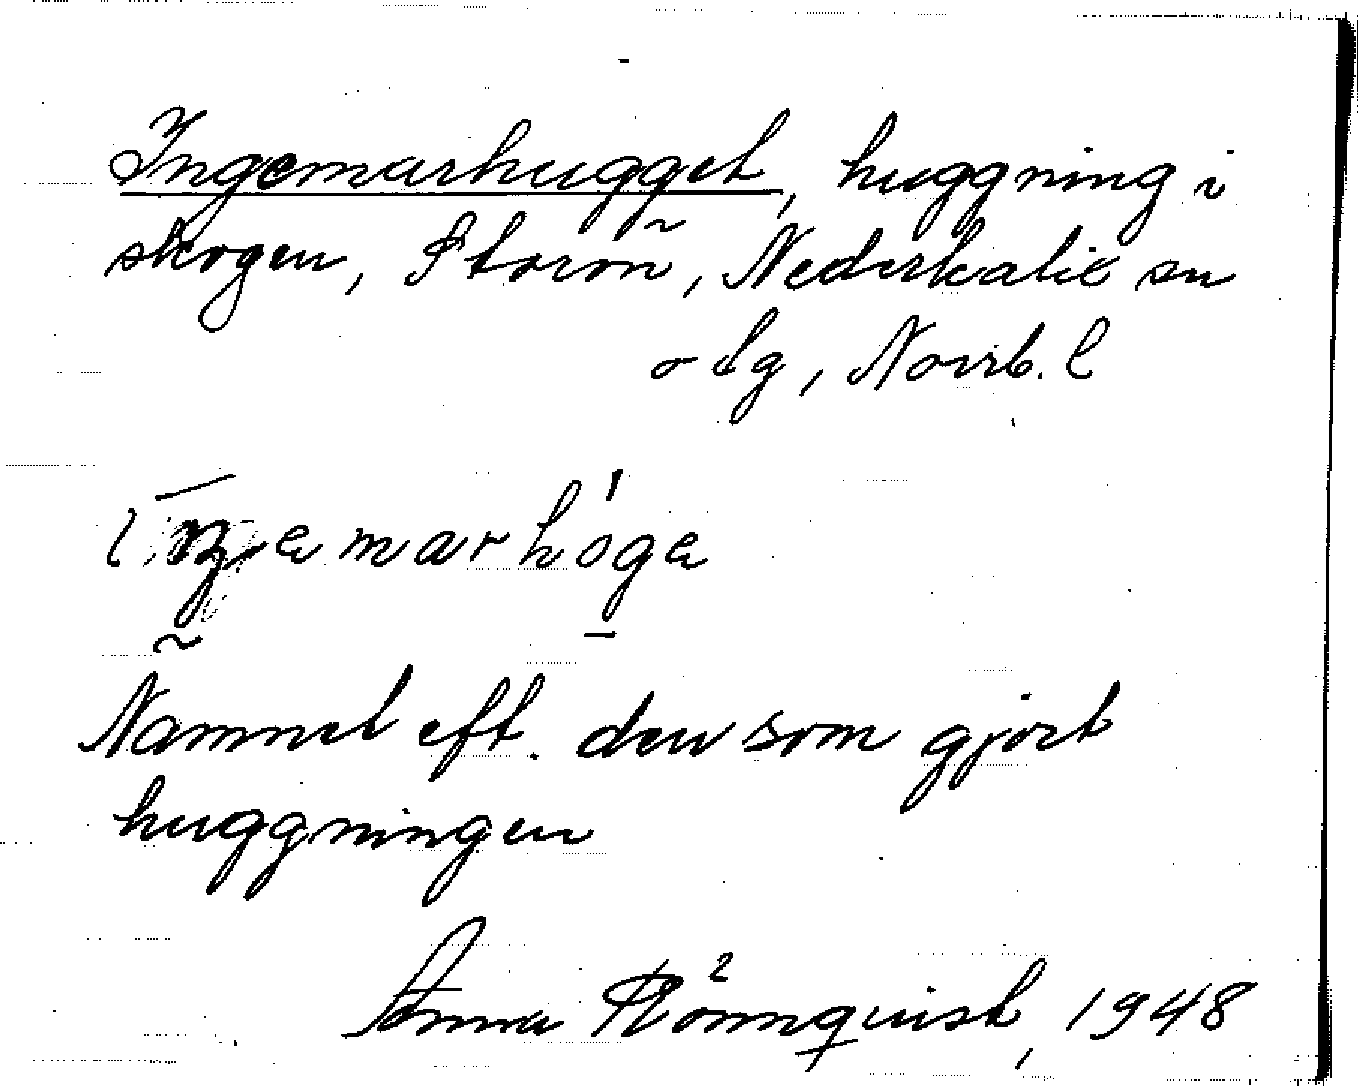 Ingemarhugget, huggning i
skogen, Storön, Nederkalix sn
o lg, Norrb. l
Namnet eft. den som gjort
huggningen
Anna Rönnquist, 1948